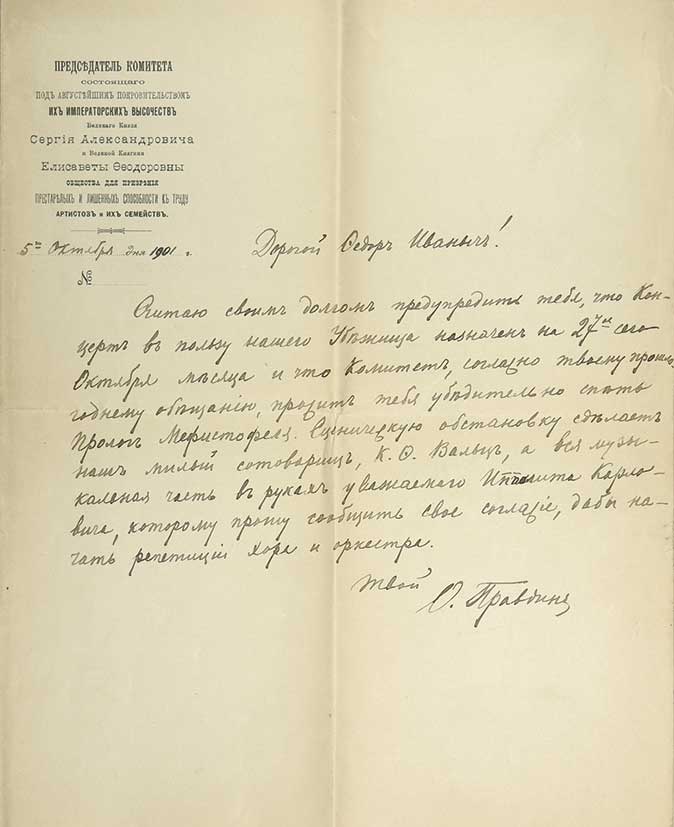 ПРЕДСѢДАТЕЛЬ КОМИТЕТА
СОСТОЯЩАГО
ПОДЪ АВГУСТѢЙШИМЪ ПОКРОВИТЕЛЬСТВОМЪ
ИХЪ ИМПЕРАТОРСКИХЪ ВЫСОЧЕСТВЪ
Великаго Князя
Сергія Александровича
и Великой Княгини
Елисаветы Ѳеодоровны
ОБЩЕСТВА ДЛЯ ПРИЗРѢНІЯ
ПРЕСТАРѢЛЫХЪ И ЛИШЕННЫХЪ СПОСОБНОСТИ КЪ ТРУДУ
АРТИСТОВЪ И ИХЪ СЕМЕЙСТВЪ.
5го Октября дня 1901 г.
№
Дорогой Ѳедоръ Иванычъ!
Считаю своимъ долгомъ предупредить тебя, что Кон-
цертъ въ пользу нашего Убѣжища назначенъ на 27ое сего
Октября мѣсяца и что Комитетъ, согласно твоему прошло-
годнему обѣщанію, проситъ тебя убѣдительно спѣть
Прологъ Мефистофеля. Сценическую обстановку сдѣлаетъ
нашъ милый сотоварищъ, К. Ѳ. Вальцъ, а вся музы-
кальная часть въ рукахъ уважаемаго Ипполита Карло-
вича, которому прошу сообщить свое согласіе, дабы на-
чать репетиціи хора и оркестра.
Твой
О. Правдинъ